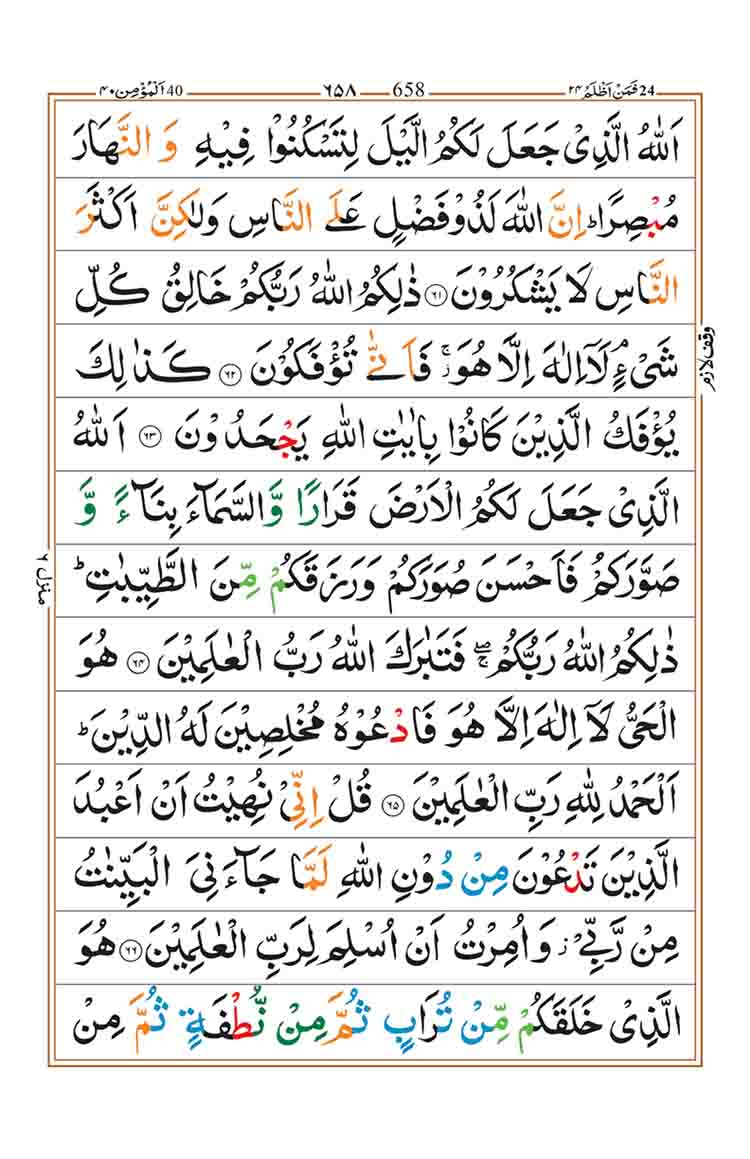 24 فَمَنْ اَظْلَمُ ٢٤ 658 ٦٥٨ 40 اَلْمُؤْمِن ٤٠
اَللّٰهُ الَّذِیْ جَعَلَ لَكُمُ الَّیْلَ لِتَسْكُنُوْا فِیْهِ وَ النَّهَارَ
مُبْصِرًاؕ اِنَّ اللّٰهَ لَذُوْ فَضْلٍ عَلَی النَّاسِ وَلٰكِنَّ اَكْثَرَ
النَّاسِ لَا یَشْكُرُوْنَ ﴿٦١﴾ ذٰلِكُمُ اللّٰهُ رَبُّكُمْ خَالِقُ كُلِّ
شَیْءٍۘ لَاۤ اِلٰهَ اِلَّا هُوَۚ فَاَنّٰی تُؤْفَكُوْنَ ﴿٦٢﴾ كَذٰلِكَ
وقف لازم
یُؤْفَكُ الَّذِیْنَ كَانُوْا بِاٰیٰتِ اللّٰهِ یَجْحَدُوْنَ ﴿٦٣﴾ اَللّٰهُ
الَّذِیْ جَعَلَ لَكُمُ الْاَرْضَ قَرَارًا وَّالسَّمَآءَ بِنَآءً وَّ
صَوَّرَكُمْ فَاَحْسَنَ صُوَرَكُمْ وَرَزَقَكُمْ مِّنَ الطَّیِّبٰتِؕ
منزل ٦
ذٰلِكُمُ اللّٰهُ رَبُّكُمْ ۖۚ فَتَبٰرَكَ اللّٰهُ رَبُّ الْعٰلَمِیْنَ ﴿٦٤﴾ هُوَ
الْحَیُّ لَاۤ اِلٰهَ اِلَّا هُوَ فَادْعُوْهُ مُخْلِصِیْنَ لَهُ الدِّیْنَؕ
اَلْحَمْدُ لِلّٰهِ رَبِّ الْعٰلَمِیْنَ ﴿٦٥﴾ قُلْ اِنِّیْ نُهِیْتُ اَنْ اَعْبُدَ
الَّذِیْنَ تَدْعُوْنَ مِنْ دُوْنِ اللّٰهِ لَمَّا جَآءَنِیَ الْبَیِّنٰتُ
مِنْ رَّبِّیْؗ وَاُمِرْتُ اَنْ اُسْلِمَ لِرَبِّ الْعٰلَمِیْنَ ﴿٦٦﴾ هُوَ
الَّذِیْ خَلَقَكُمْ مِّنْ تُرَابٍ ثُمَّ مِنْ نُّطْفَةٍ ثُمَّ مِنْ